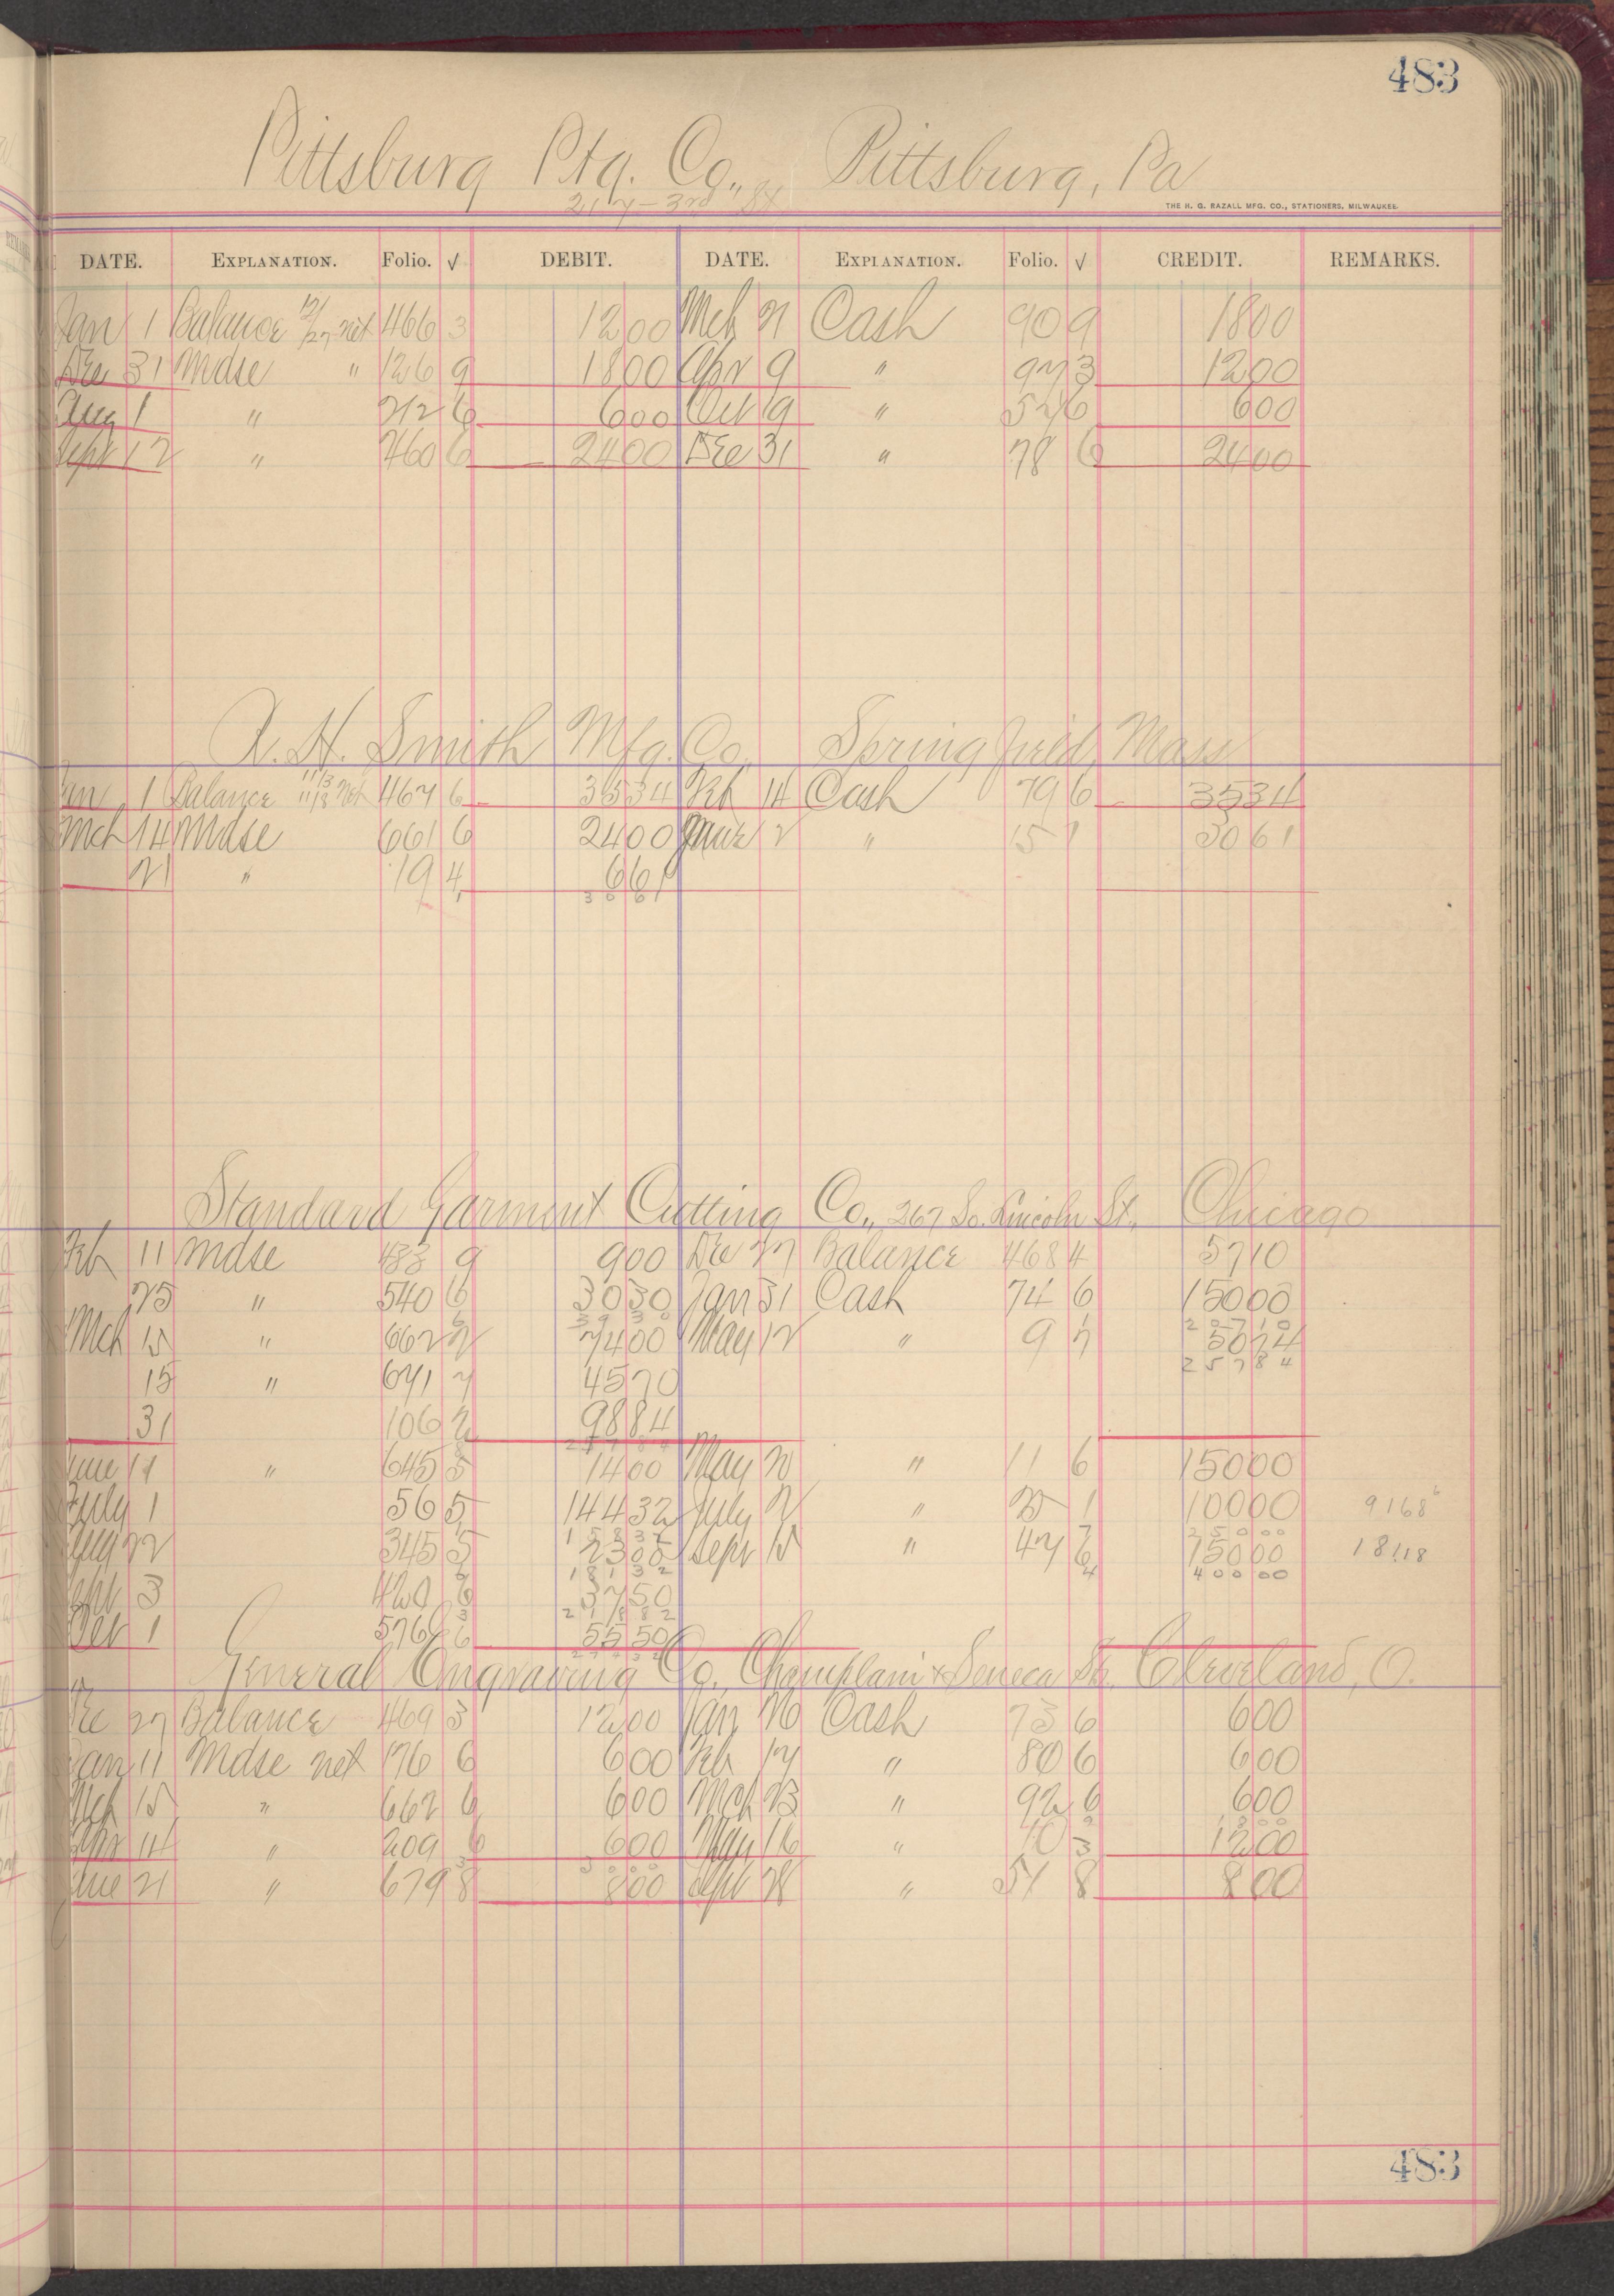 483
Pittsburg Ptg. Co., Pittsburg, Pa
217 - 3rd St
THE H. G. RAZALL MFG. CO., STATIONERS, MILWAUKEE.
DATE. EXPLANATION. Folio. √ DEBIT. DATE. EXPLANATION. Folio. √ CREDIT. REMARKS.
Jan 1 Balance 12/27 net 466 3 1200 Mch 21 Cash 90 9 1800
Dec 31 Mdse " 126 9 1800 Apr 9 " 97 3 1200
Aug 1 " 212 6 600 Oct 9 " 52 6 600
Sept 12 " 460 6 2400 Dec 31 " 78 6 2400
H. Smith Mfg. Co. Springfield, Mass
Jan 1 Balance 11/3 11/18 Net 467 6 3534 Feb 14 Cash 79 6 3534
Mch 14 Mdse 661 6 2400 2 " 15 1 3061
21 " 19 4 661
3061
Standard Garment Cutting Co., 267 So. Lincoln St., Chicago
Feb 11 Mdse 433 9 900 Dec 27 Balance 468 4 5710
25 " 540 6 3030 Jan 31 Cash 74 6 15000
3930 20710
Mch 15 " 662 2 7400 May 12 " 9 7 5074
25784
15 " 671 7 4570
31 106 2 9884
25784
June 17 " 645 5 1400 May 20 " 11 6 15000
July 1 56 5 14432 July 2 " 25 1 10000 9168
15832 25000
Aug 22 345 5 2300 Sept 15 " 47 6 15000 18118
18132 40000
Sept 3 420 6 3750
21882
Oct 1 576 6 5550
27432
General Engraving Co., Champlain & Seneca Sts. Cleveland, O.
Dec 27 Balance 469 3 1200 Jan 26 Cash 73 6 600
Jan 11 Mdse net 176 6 600 Feb 17 " 80 6 600
Mch 15 " 662 6 600 Mch 23 " 92 6 600
Apr 14 " 209 6 600 May 16 " 10 3 1200
3000
June 21 " 679 8 800 Sept 28 " 51 8 800
483